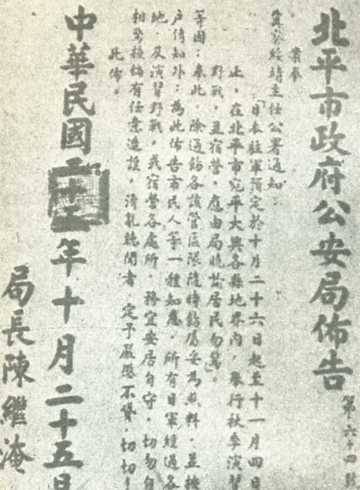 北平市政府公安局佈告
第六十四號
案奉
冀察綏靖主任公署通知：
「日本駐軍預定於十月二十六日起至十一月四日
止，在北平市宛平大興各縣地界內，舉行秋季演習
野戰，並宿營，應由局曉諭居民勿驚」
等因；奉此，除通飭各該管區隊隨時飭屬妥為照料，並挨
戶傳知外；為此佈告市民人等一種知悉，所有日軍經過各
地，及演習野戰，或宿營各處所，務宜安居自守，切勿自
相驚擾倘有任意造謠，淆亂聽聞者，定予嚴懲不貸，切切！
此佈。
中華民國二十 年十月二十五日
局長陳繼淹